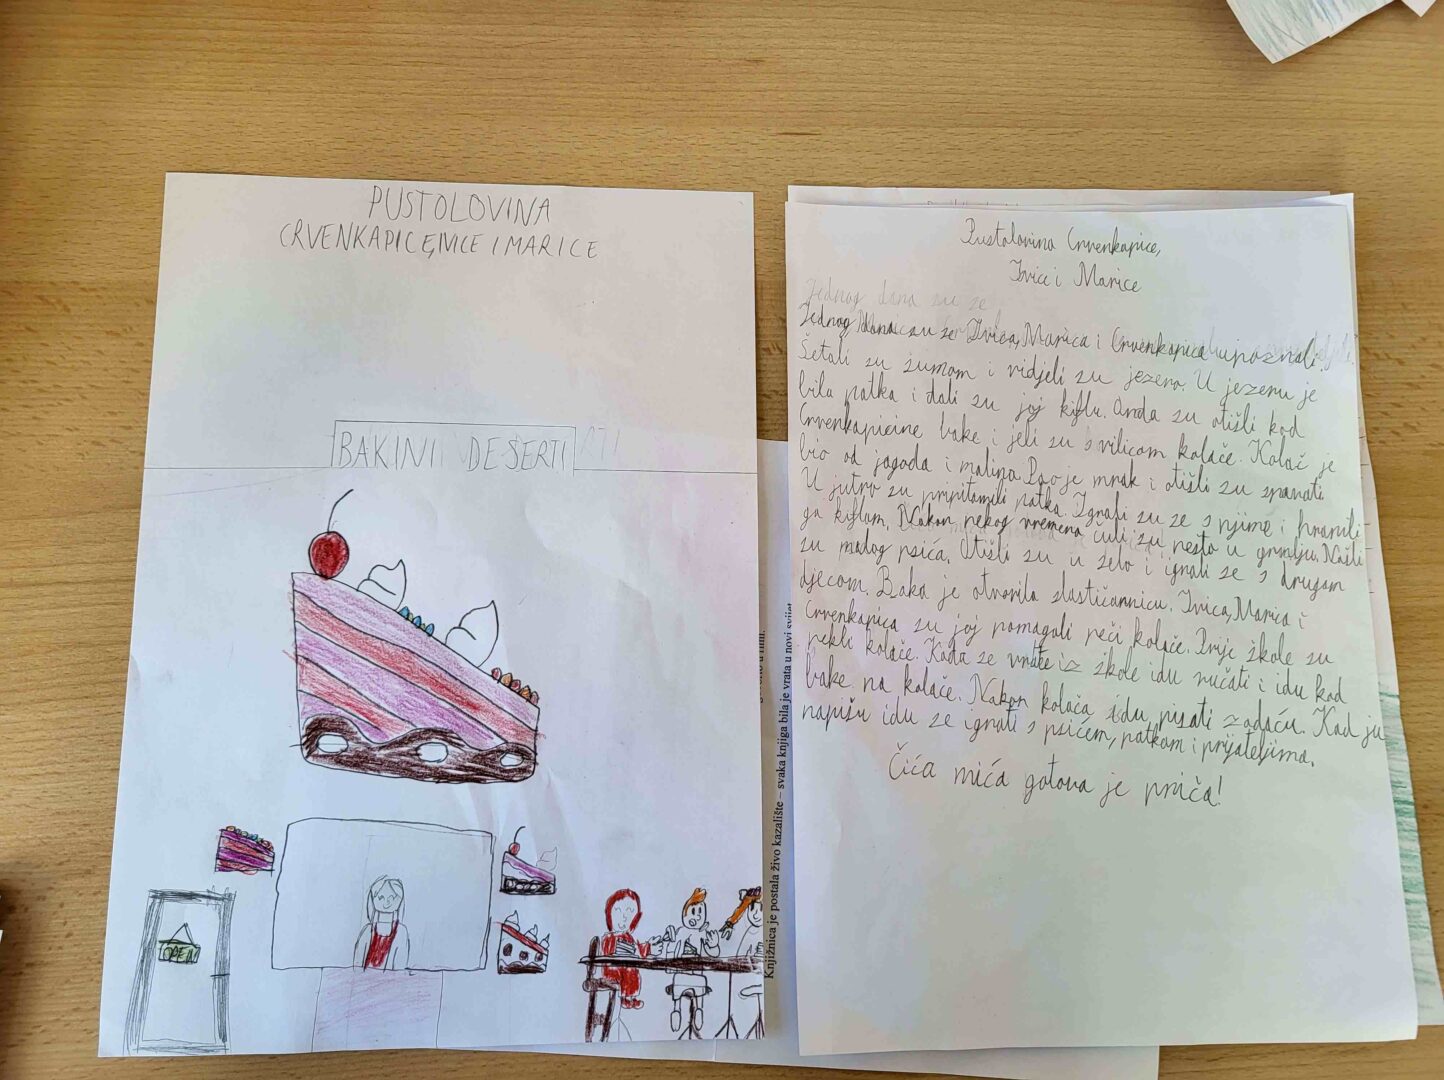 PUSTOLOVINA
CRVENKAPICE, IVICE I MARICE
BAKINI DESERTI
OPEN
Pustolovina Crvenkapice,
Ivice i Marice
Jednog dana su se
Jednog dana su se Ivica, Marica i Crvenkapica upoznali.
Šetali su šumom i vidjeli su jezero. U jezeru je
bila patka i dali su joj kiflu. Onda su otišli kod
Crvenkapicine bake i jeli su s vilicom kolače. Kolač je
bio od jagoda i malina. Pao je mrak i otišli su spavati.
U jutro su pripitomili patka. Igrali su se s njime i hranili
ga kiflom. Nakon nekog vremena čuli su nešto u grmlju. Našli
su malog psića. Otišli su u selo i igrali se s drugom
djecom. Baka je otvorila slastičarnicu. Ivica, Marica i
Crvenkapica su joj pomagali peći kolače. Prije škole su
pekli kolače. Kada se vrate iz škole idu ručati i idu kod
bake na kolače. Nakon kolača idu pisati zadaću. Kad ju
napišu idu se igrati s psićem, patkom i prijateljima.
Čiča miča gotova je priča!
Knjižnica je postala živo kazalište – svaka knjiga bila je vrata u novi svijet